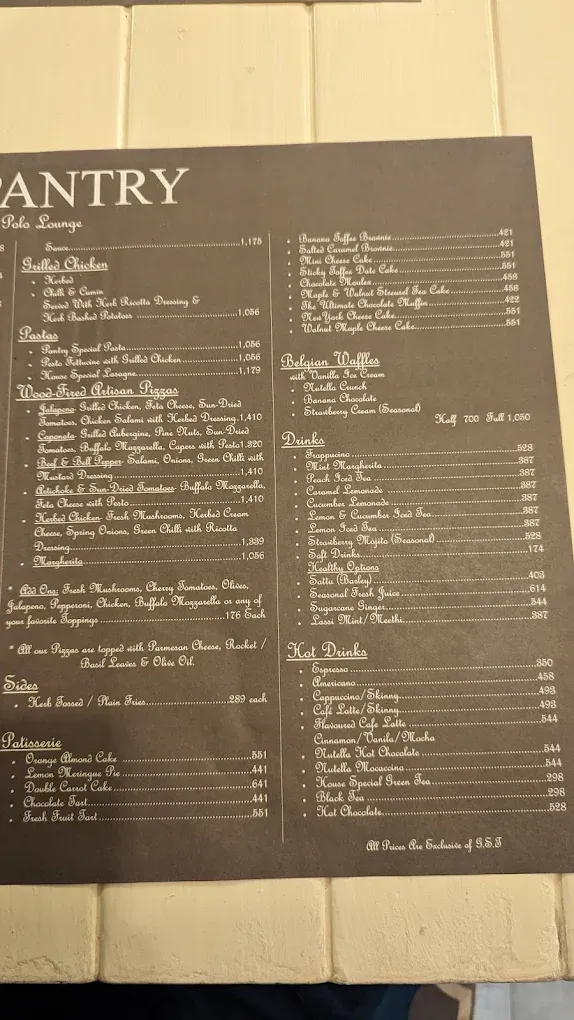 PANTRY
Polo Lounge
Sauce...1,175
Grilled Chicken
Herbed
Chilli & Cumin
Served With Herb Ricotta Dressing &
Herb Bashed Potatoes...1,056
Pastas
Pantry Special Pasta...1,056
Pesto Fettucine with Grilled Chicken...1,056
House Special Lasagne...1,179
Wood-Fired Artisan Pizzas
Jalapeno- Grilled Chicken, Feta Cheese, Sun-Dried
Tomatoes, Chicken Salami with Herbed Dressing.1,410
Caponata- Grilled Aubergine, Pine Nuts, Sun-Dried
Tomatoes, Buffalo Mozzarella, Capers with Pesto1,320
Beef & Bell Pepper- Salami, Onions, Green Chilli with
Mustard Dressing...1,410
Artichoke & Sun-Dried Tomatoes- Buffalo Mozzarella,
Feta Cheese with Pesto...1,410
Herbed Chicken- Fresh Mushrooms, Herbed Cream
Cheese, Spring Onions, Green Chilli with Ricotta
Dressing...1,339
Margherita...1,056
* Add Ons: Fresh Mushrooms, Cherry Tomatoes, Olives,
Jalapeno, Pepperoni, Chicken, Buffalo Mozzarella or any of
your favorite Toppings...176 Each
* All our Pizzas are topped with Parmesan Cheese, Rocket /
Basil Leaves & Olive Oil.
Sides
Herb Tossed / Plain Fries...289 each
Patisserie
Orange Almond Cake...551
Lemon Meringue Pie...441
Double Carrot Cake...641
Chocolate Tart...441
Fresh Fruit Tart...551
Banana Toffee Brownie...421
Salted Caramel Brownie...421
Mini Cheese Cake...551
Sticky Toffee Date Cake...551
Chocolate Moulen...458
Maple & Walnut Streusel Tea Cake...458
The Ultimate Chocolate Muffin...422
NewYork Cheese Cake...551
Walnut Maple Cheese Cake...551
Belgian Waffles
with Vanilla Ice Cream
Nutella Crunch
Banana Chocolate
Strawberry Cream (Seasonal)
Half 700 Full 1,050
Drinks
Frappucino...528
Mint Margherita...387
Peach Iced Tea...387
Caramel Lemonade...387
Cucumber Lemonade...387
Lemon & Cucumber Iced Tea...387
Lemon Iced Tea...387
Strawberry Mojita (Seasonal)...528
Soft Drinks...174
Healthy Options
Sattu (Barley)...403
Seasonal Fresh Juice...614
Sugarcane Ginger...544
Lassi Mint/Meethi...387
Hot Drinks
Espresso...350
Americano...458
Cappuccino/Skinny...493
Café Latte/Skinny...493
Flavoured Cafe Latte...544
Cinnamon/Vanila/Mocha
Nutella Hot Chocolate...544
Nutella Mocaccino...544
House Special Green Tea...298
Black Tea...298
Hot Chocolate...528
All Prices Are Exclusive of G.S.T